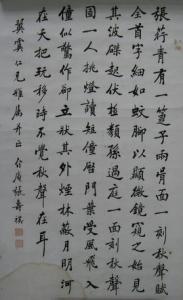 張行青有一篋子兩骨面一刻秋聲賦
全首字細如蚊腳以顯微鏡窺之始見
其波磔起伏极類孫過庭一面刻秋聲
圖一人挑燈讀短僮啟門葉受風飛入
僮似驚愕卻立狀其外煙林蔽月明河
在天把玩移時不覺秋聲在耳
冀雲仁兄雅屬并正 張壽祺